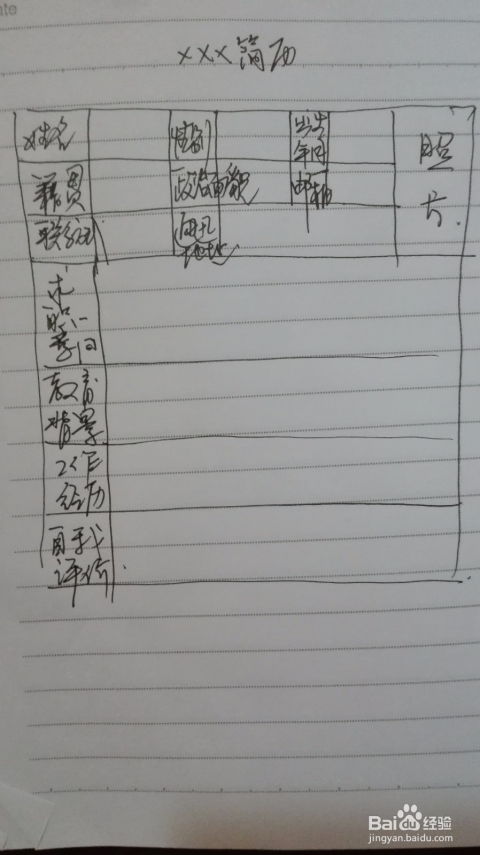 ate
×××简历
姓名 性别 出生年月 照片
籍贯 政治面貌 邮箱
联系方式 通讯地址
求职意向
教育背景
工作经历
自我评价
Baidu经验
jingyan.baidu.com